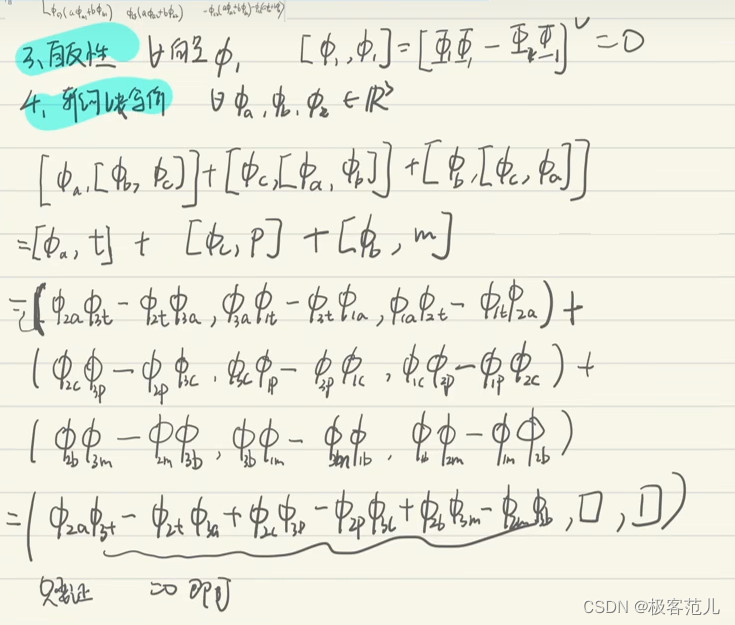 3、自反性 ∀向量 ϕ₁ [ϕ₁,ϕ₁]=[Φ₁Φ₁ − Φ₁Φ₁]^∨=0
4、雅可比等价 ∀ ϕa, ϕb, ϕz ∈ ℝ³
[ϕa,[ϕb, ϕc]]+[ϕc,[ϕa, ϕb]]+[ϕb,[ϕc, ϕa]]
=[ϕa, t] + [ϕc, p] + [ϕb, m]
=(ϕ2aϕ3t − ϕ2tϕ3a, ϕ3aϕ1t − ϕ3tϕ1a, ϕ1aϕ2t − ϕ1tϕ2a) +
(ϕ2cϕ3p − ϕ2pϕ3c, ϕ3cϕ1p − ϕ3pϕ1c, ϕ1cϕ2p − ϕ1pϕ2c) +
(ϕ2bϕ3m − ϕ2mϕ3b, ϕ3bϕ1m − ϕ3mϕ1b, ϕ1bϕ2m − ϕ1mϕ2b)
=(ϕ2aϕ3t − ϕ2tϕ3a + ϕ2cϕ3p − ϕ2pϕ3c + ϕ2bϕ3m − ϕ2mϕ3b, □, □)
只需证 =0 即可
CSDN @极客范儿